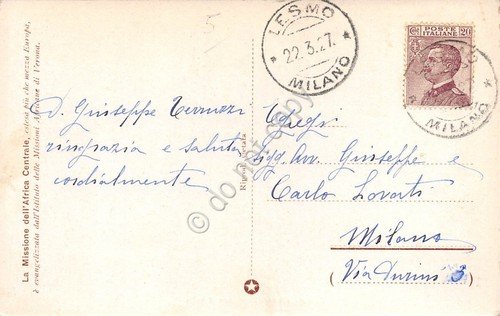 5
LESMO
22.3.27.
MILANO
POSTE
ITALIANE 20
MILANO
La Missione dell'Africa Centrale, estesa più che mezza Europa,
è evangelizzata dall'Istituto delle Missioni Africane di Verona.
D. Giuseppe
ringrazia e saluta
cordialmente
Egregi
Sigg. Avv. Giuseppe e
Carlo Lovati
Milano
Via Durini 3